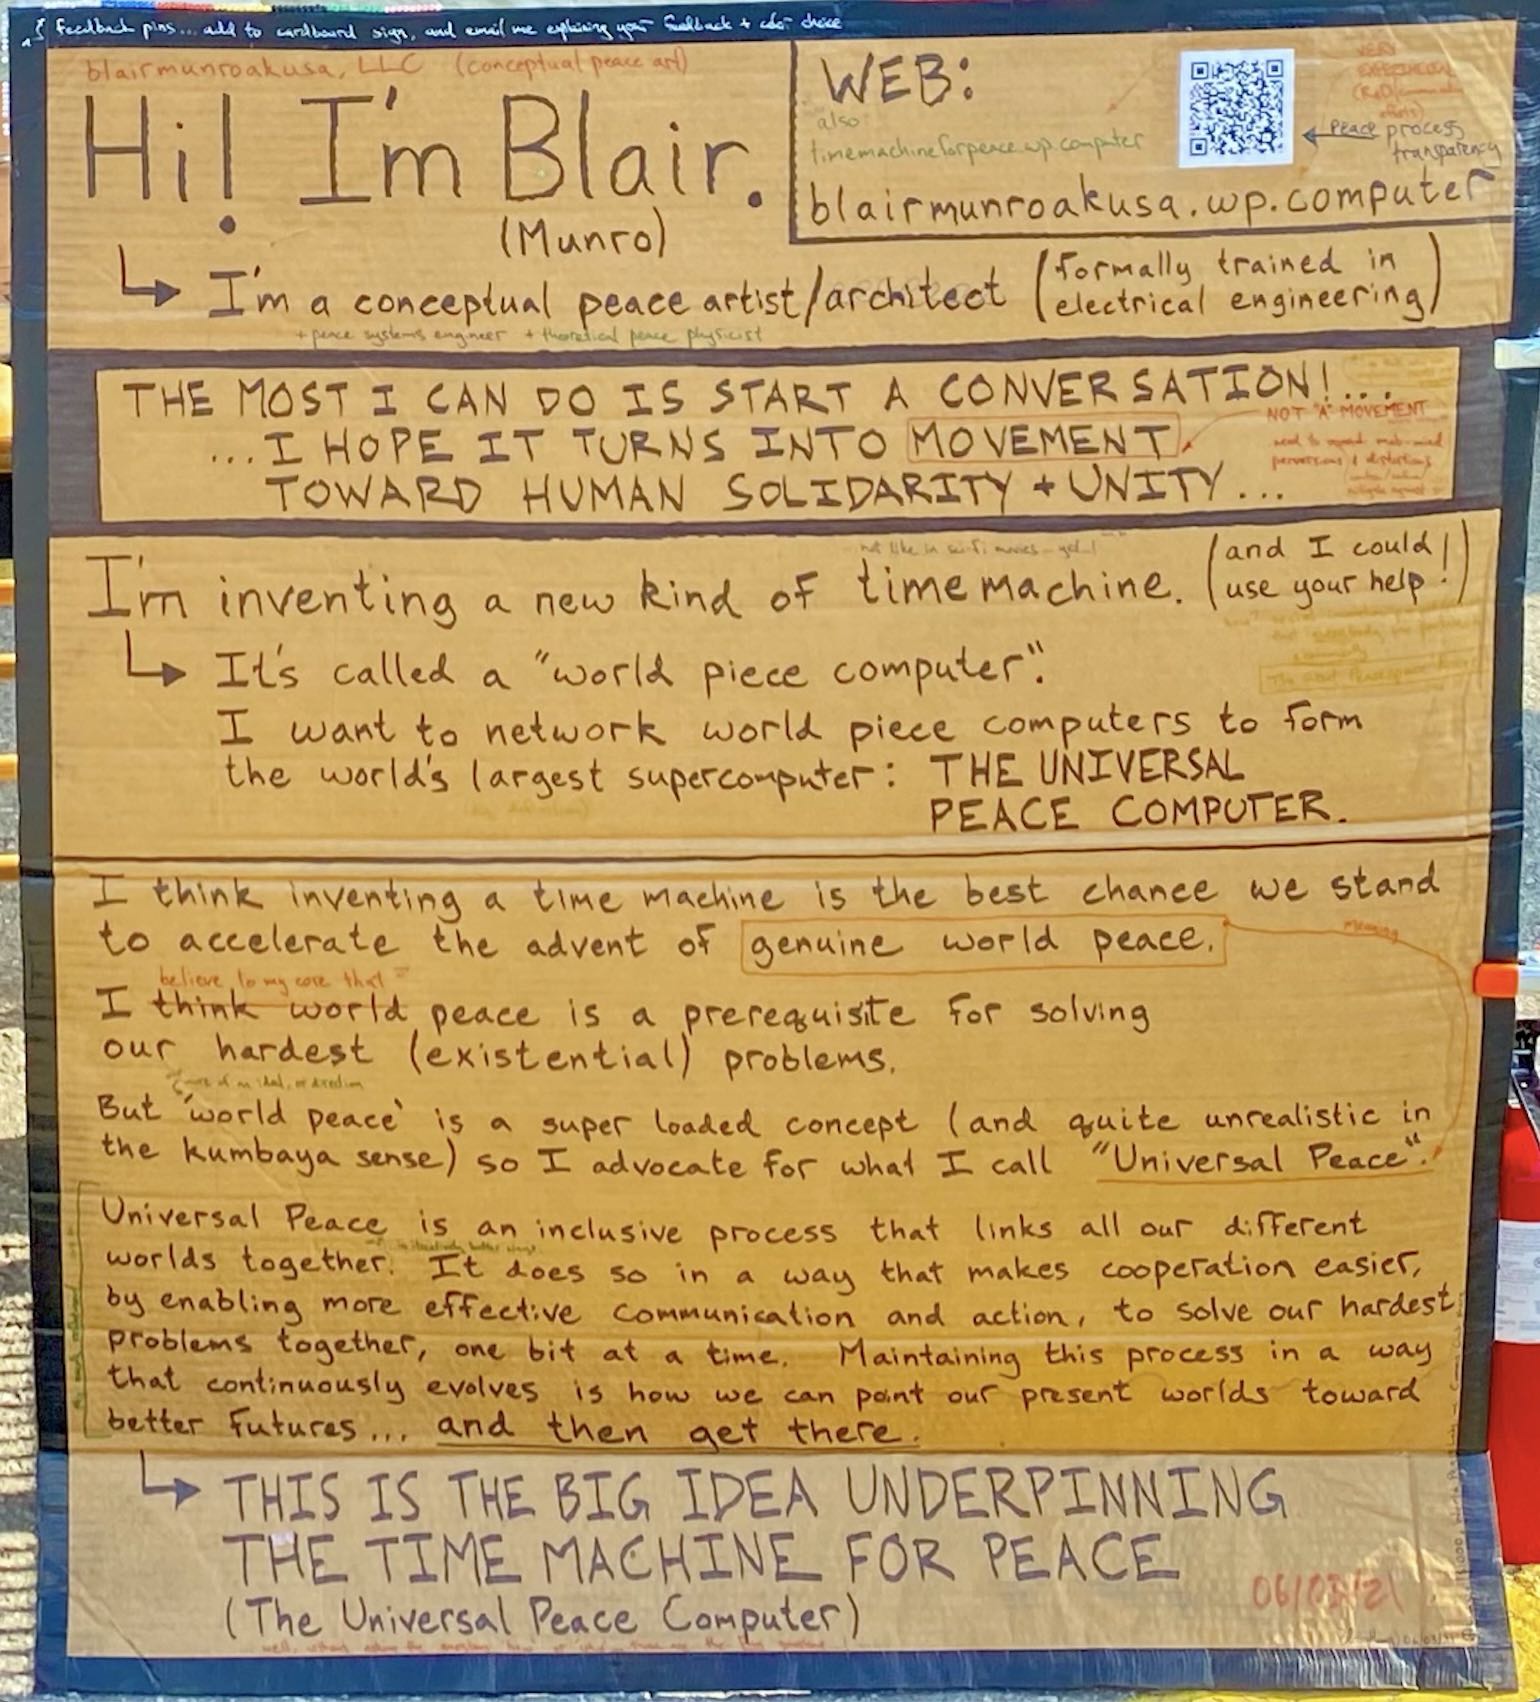 feedback pins... add to cardboard sign, and email me explaining your feedback + color choice
blairmunroakusa, LLC (conceptual peace art)
Hi! I'm Blair.
(Munro)
WEB:
also
timemachineforpeace.wp.computer
VERY
EXPERIMENTAL
peace process
transparency
blairmunroakusa.wp.computer
I'm a conceptual peace artist/architect (formally trained in
electrical engineering)
+ peace systems engineer + theoretical peace physicist
THE MOST I CAN DO IS START A CONVERSATION!...
...I HOPE IT TURNS INTO MOVEMENT
TOWARD HUMAN SOLIDARITY + UNITY...
NOT "A" MOVEMENT
perversions + distortions
not like in sci-fi movies - yet!
I'm inventing a new kind of time machine. (and I could
use your help!)
It's called a "world piece computer".
I want to network world piece computers to form
the world's largest supercomputer: THE UNIVERSAL
PEACE COMPUTER.
I think inventing a time machine is the best chance we stand
to accelerate the advent of genuine world peace.
meaning
believe to my core that
I think world peace is a prerequisite for solving
our hardest (existential) problems.
more of an ideal, or direction
But 'world peace' is a super loaded concept (and quite unrealistic in
the kumbaya sense) so I advocate for what I call "Universal Peace".
Universal Peace is an inclusive process that links all our different
worlds together. It does so in a way that makes cooperation easier,
by enabling more effective communication and action, to solve our hardest
problems together, one bit at a time. Maintaining this process in a way
that continuously evolves is how we can point our present worlds toward
better futures... and then get there.
THIS IS THE BIG IDEA UNDERPINNING
THE TIME MACHINE FOR PEACE
(The Universal Peace Computer)
06/03/21